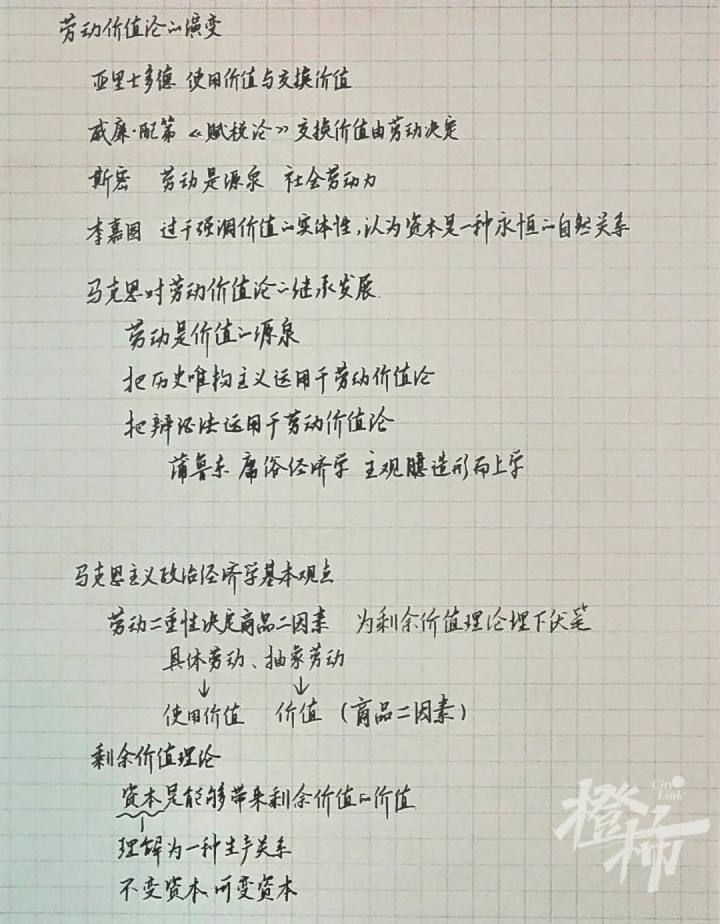 劳动价值论的演变
亚里士多德 使用价值与交换价值
威廉·配第《赋税论》交换价值由劳动决定
斯密 劳动是源泉 社会劳动力
李嘉图 过于强调价值的实体性,认为资本是一种永恒的自然关系
马克思对劳动价值论的继承发展.
劳动是价值的源泉
把历史唯物主义运用于劳动价值论
把辩证法运用于劳动价值论
蒲鲁东 庸俗经济学 主观臆造形而上学
马克思主义政治经济学基本观点
劳动二重性决定商品二因素 为剩余价值理论埋下伏笔
具体劳动、抽象劳动
↓ ↓
使用价值 价值 (商品二因素)
剩余价值理论
资本是能够带来剩余价值的价值
理解为一种生产关系
不变资本、可变资本
City Link
橙柿